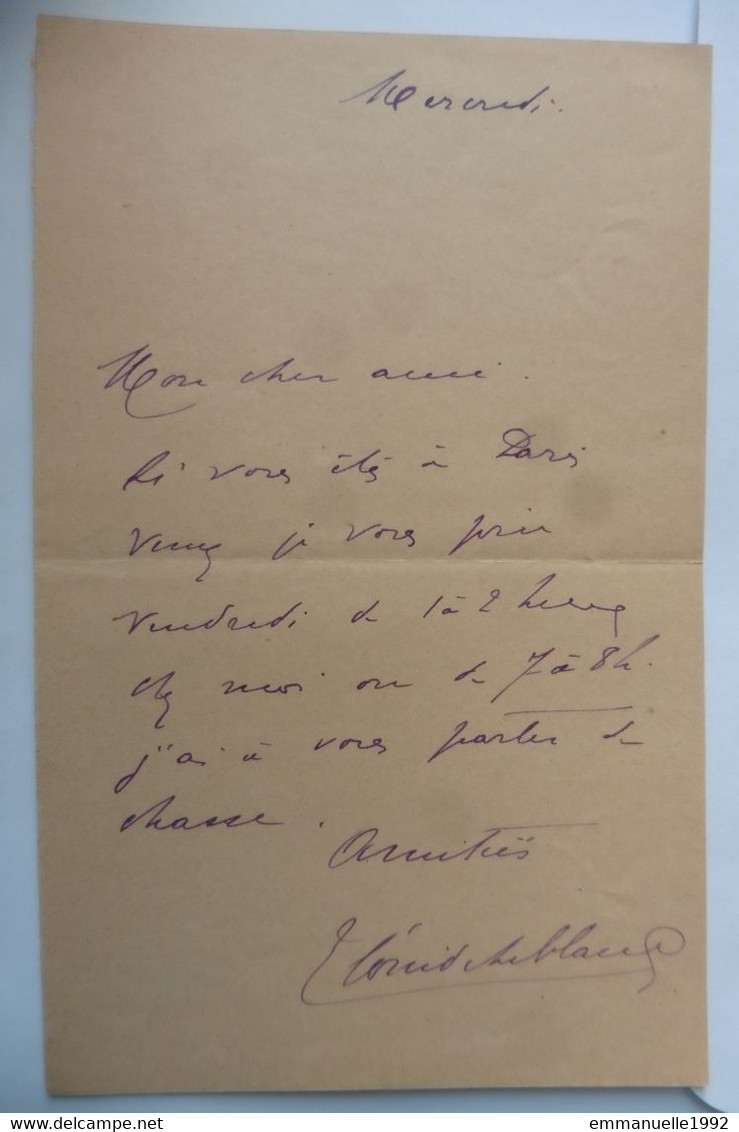 Mercredi.
Mon cher ami.
Si vous êtes à Paris
venez je vous prie
vendredi de 1 à 2 heures
chez moi ou de 7 à 8 h.
j'ai à vous parler de
chasse.
Amitiés
emmanuelle1992